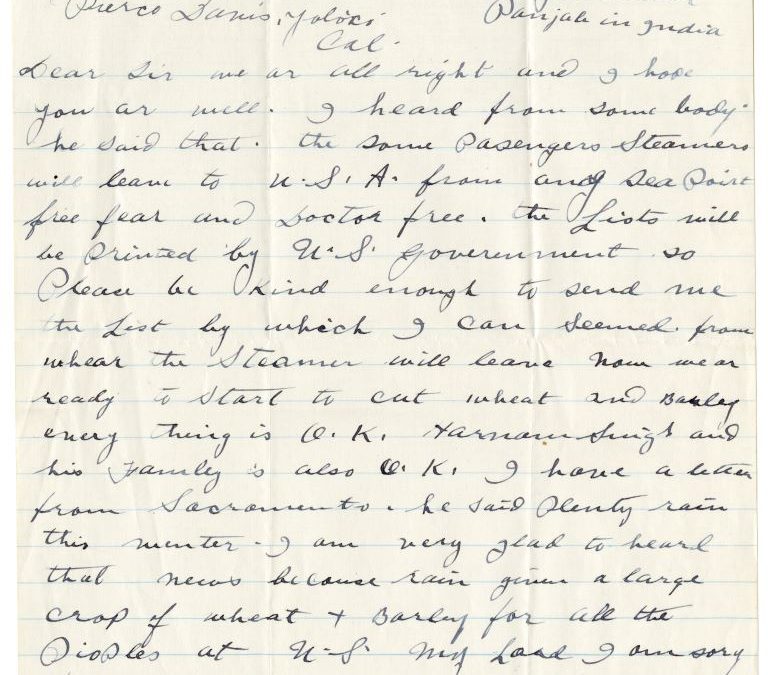 Pierco Danis, Yoloxi
Panjab in India
Cal.
Dear Sir we ar all right and I hope
you ar well. I heard from some body
he said that. the some Pasengers Steamers
will leave to U.S.A. from any Sea Poirt
free fear and Doctor free. the Lists will
be printed by U.S. Goverenment so
Please be kind enough to send me
the List by which I can seemed from
whear the Steamer will leave Now we ar
ready to start to cut wheat and Barley
every thing is O.K. Harnam Singh and
his Famley is also O.K. I have a letter
from Sacromento. he said Plenty rain
this wenter. I am very glad to heard
that news because rain given a large
crop of wheat + Barley for all the
Pioples at U.S. My Lord I am sory